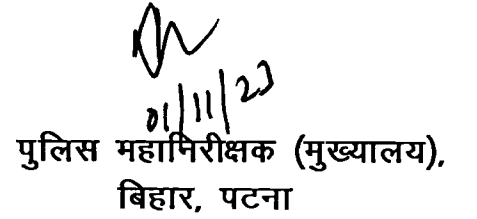 01/11/23
पुलिस महानिरीक्षक (मुख्यालय),
बिहार, पटना